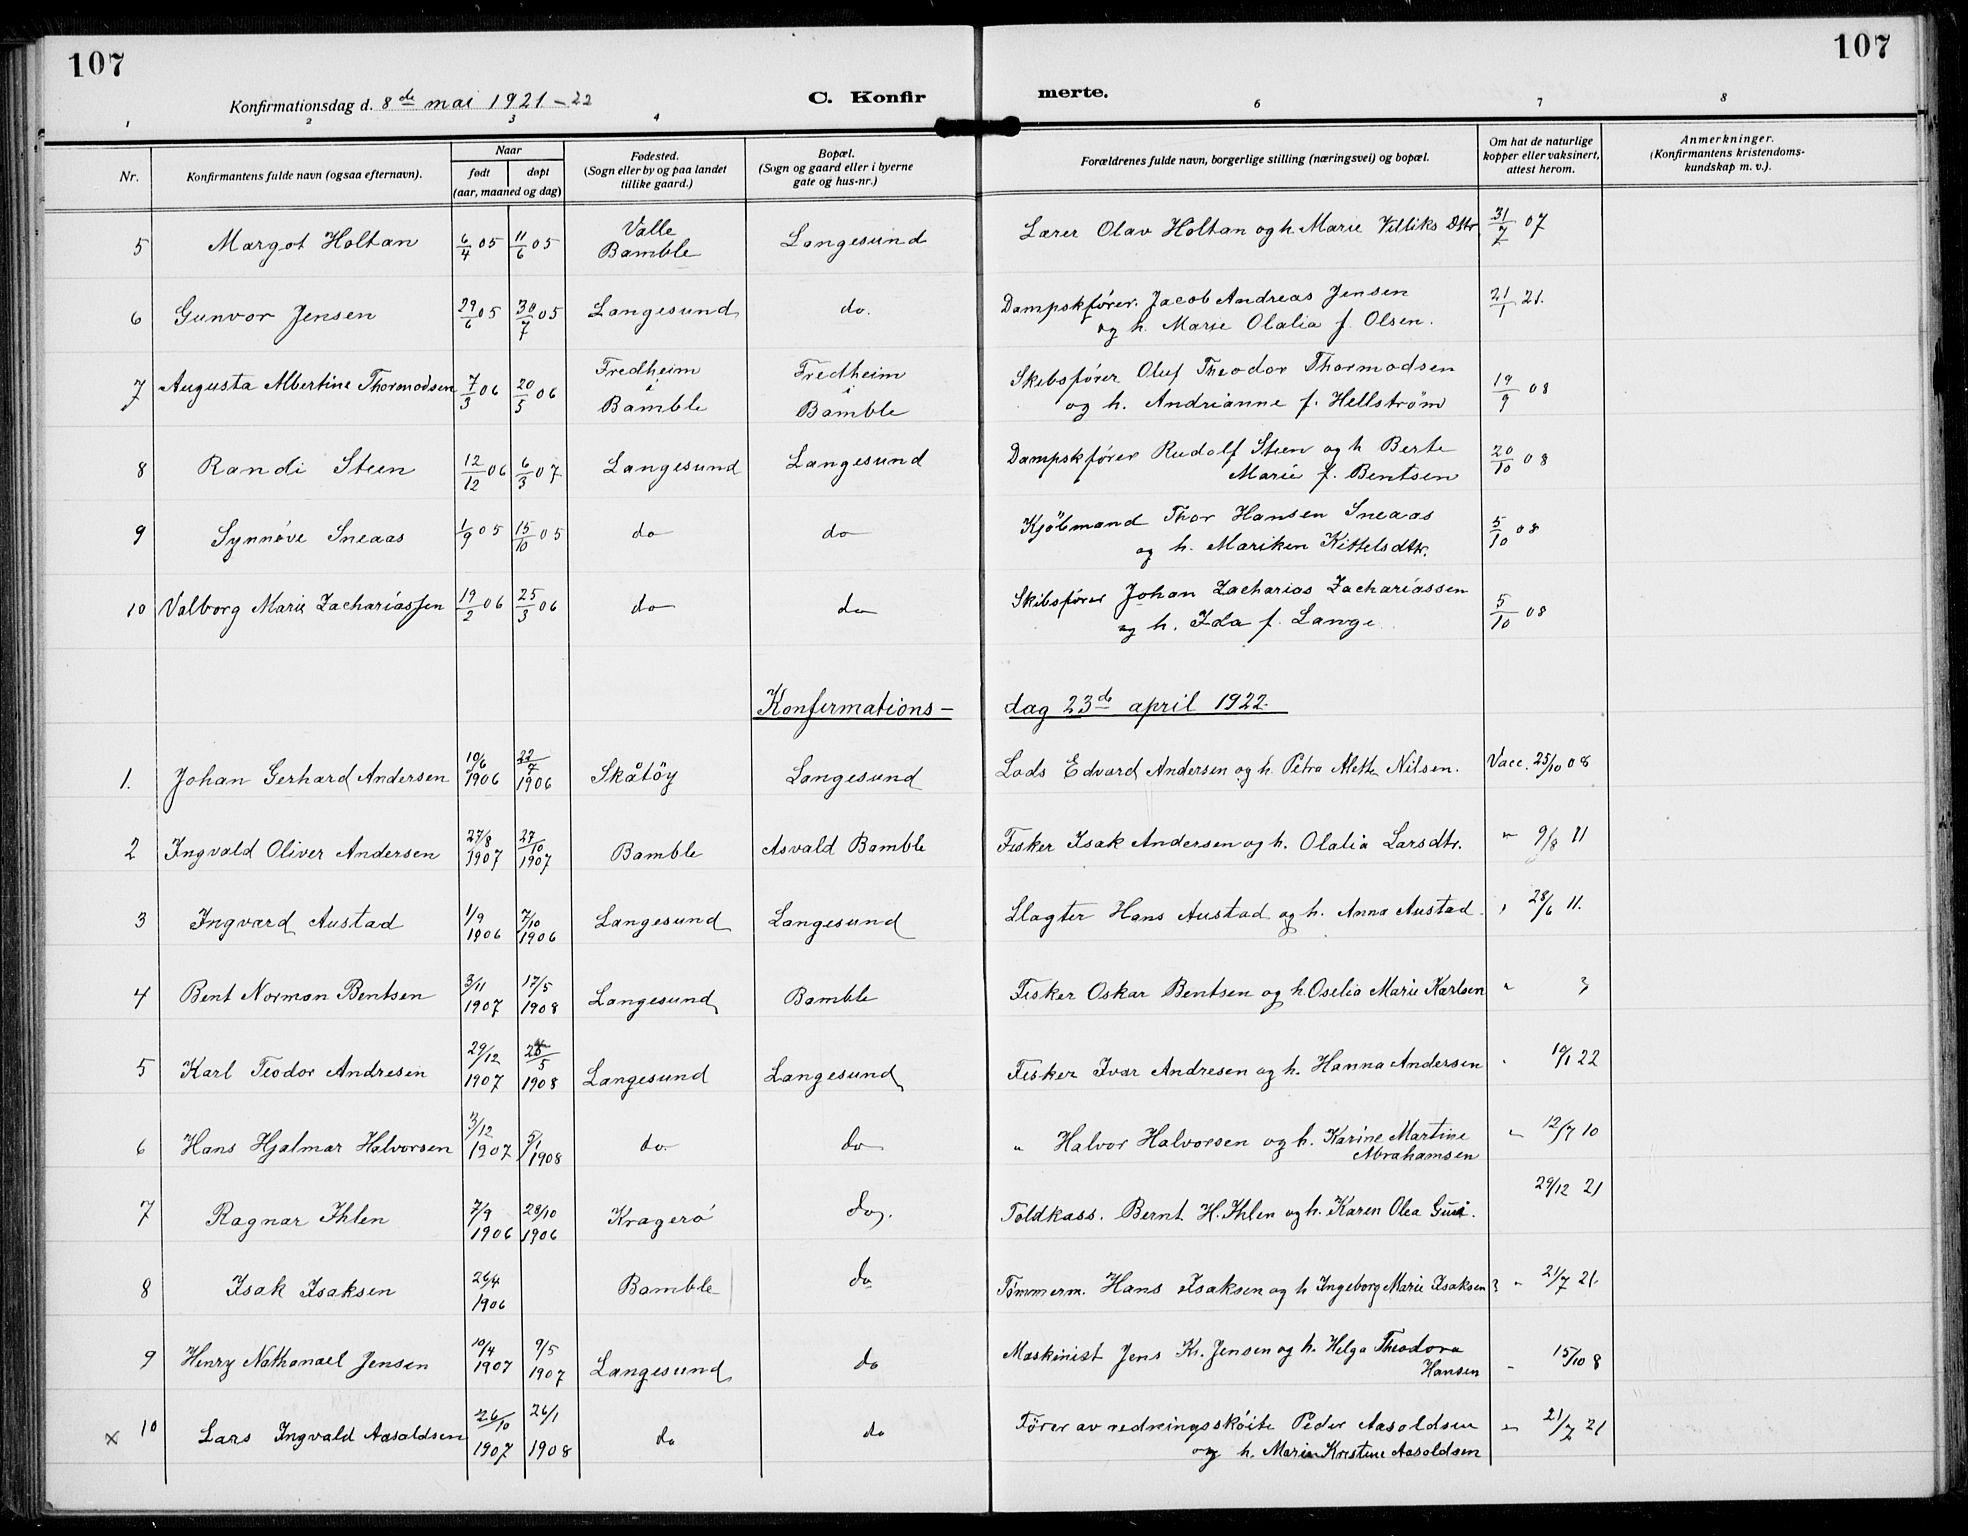 107
107
Konfirmationsdag d. 8de mai 1921-22
C. Konfir merte.
1 2 3 4 6 7 8
Nr.
Konfirmantens fulde navn (ogsaa efternavn).
Naar
født døpt
(aar, maaned og dag)
Fødested.
(Sogn eller by og paa landet
tillike gaard.)
Bopæl.
(Sogn og gaard eller i byerne
gate og hus-nr.)
Forældrenes fulde navn, borgerlige stilling (næringsvei) og bopæl.
Om hat de naturlige
kopper eller vaksinert,
attest herom.
Anmerkninger.
(Konfirmantens kristendoms-
kundskap m. v.).
5 Margot Holtan 6/4 05 11/6 05 Valle Bamble Langesund Lærer Olav Holtan og h. Marie Dttr 31/7 07
6 Gunvor Jensen 29/6 05 30/7 05 Langesund do. Dampskfører. Jacob Andreas Jensen
og h. Marie Olalia f. Olsen. 21/1 21.
7 Augusta Albertine Thormodsen 7/3 06 20/5 06 Fredheim i Bamble Fredheim i Bamble Skibsfører Oluf Theodor Thormodsen
og h. Andrianne f. Hellstrøm 19/9 08
8 Randi Steen 12/12 06 6/3 07 Langesund Langesund Dampskfører Rudolf Steen og h Berte
Marie f. Bentsen 20/10 08
9 Synnöve Sneaas 1/9 05 15/10 05 do do Kjöbmand Thor Hansen Sneaas
og h. Mariken Kittelsdtr. 5/10 08
10 Valborg Marie Zachariassen 19/2 06 25/3 06 do do Skibsfører Johan Zacharias Zachariassen
og h. Ida f. Lange 5/10 08
Konfirmations- dag 23de april 1922.
1. Johan Gerhard Andersen 10/6 1906 22/7 1906 Skåtöy Langesund Lods Edvard Andersen og h. Petra Alette Nilsen. Vacc. 25/10 08
2 Ingvald Oliver Andersen 27/8 1907 27/10 1907 Bamble Asvald Bamble Fisker Isak Andersen og h. Olalia Larsdtr. " 9/8 11
3 Ingvard Austad 1/9 1906 7/10 1906 Langesund Langesund Slagter Hans Austad og h. Anna Austad. " 28/6 11.
4 Bent Norman Bentsen 3/11 1907 17/5 1908 Langesund Bamble Fisker Oskar Bentsen og h. Oselia Marie Karlsen " ?
5 Karl Teodor Andresen 29/12 1907 /5 1908 Langesund Langesund Fisker Ivar Andresen og h. Hanna Andersen " 10/1 22
6 Hans Hjalmar Halvorsen 3/12 1907 5/1 1908 do. do " Halvor Halvorsen og h. Karine Martine
Abrahamsen " 12/7 10
7 Ragnar Ihlen 7/9 1906 28/10 1906 Kragerö do. Toldkass. Bernt H. Ihlen og h. Karen Olea 29/12 21
8 Isak Isaksen 26/4 1906 Bamble do Tømmerm. Hans Isaksen og h Ingeborg Marie Isaksen " 21/7 21.
9 Henry Nathanael Jensen 10/4 1907 9/5 1907 Langesund do Maskinist Jens Kr. Jensen og h. Helga Theodora
Hansen " 15/10 8
x 10 Lars Ingvald Aasoldsen 26/10 1907 26/1 1908 do do Fører av redningsskøite Peder Aasoldsen
og h. Maren Kristine Aasoldsen " 21/7 21